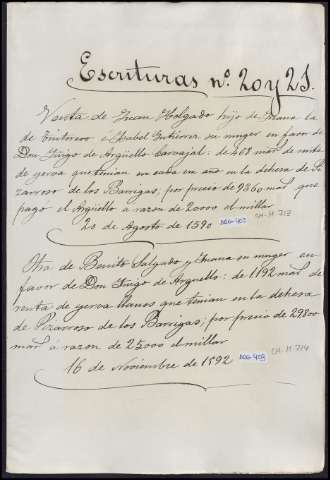 Escrituras nº. 20 y 21.
Venta de Juan Holgado hijo de Juana la
de é Isabel Gutierrez su muger en favor de
Don Iñigo de Argüello Carvajal: de 468 mars. de renta
de yerva que tenian en cada en año en la dehesa de Pi
zarroso de los Barrigas, por precio de 9360 mars. que
pagó el Argüello á razon de 20000 el millar
28 de Agosto de 1590
409 CH-M 713
Otra de Benito Salgado y Juana su muger en
favor de Don Iñigo de Arguello: de 1192 mars. de
renta de yerva llanes que tenian en la dehesa
de Pizarroso de los Barrigas; por precio de 29800
mars. á razon de 25000 el millar
16 de Noviembre de 1592
409 CH-M 714